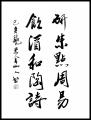 研朱點周易
飲酒和陶詩